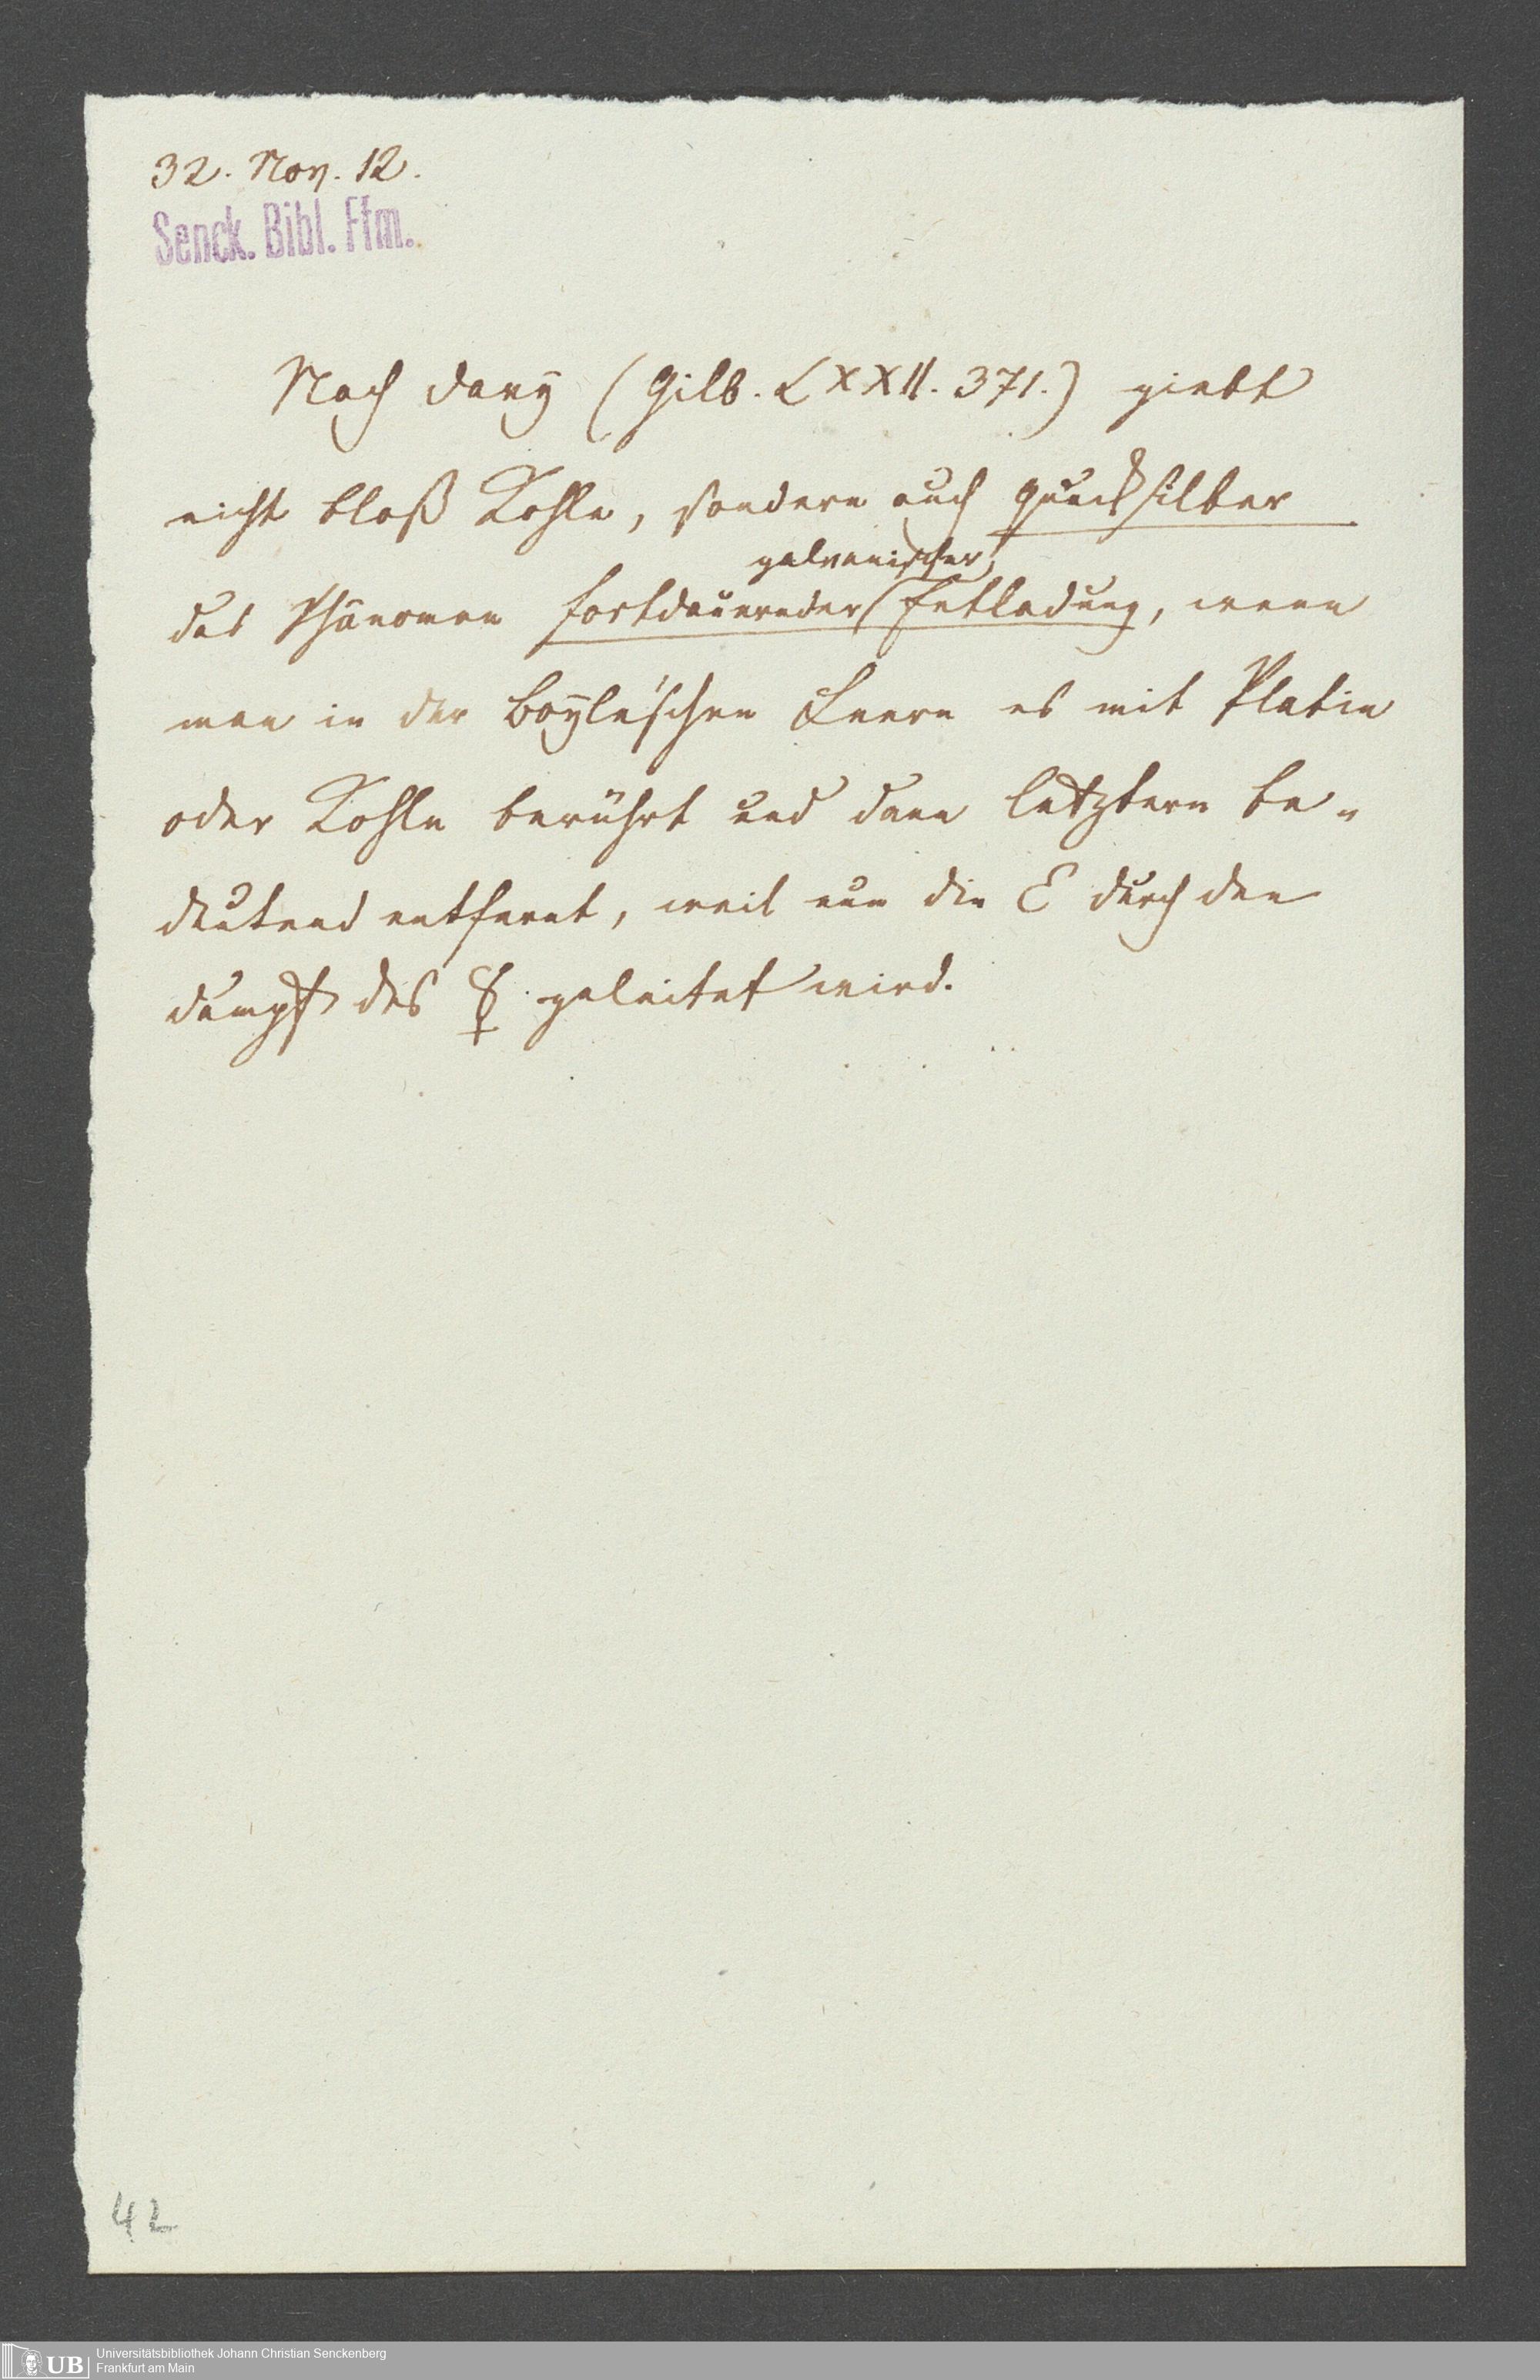 32. Nov. 12.
Senck. Bibl. Ffm.
Nach Davy (Gilb. LXXII. 371.) giebt
nicht bloß Kohle, sondern auch Quecksilber
galvanischer
das Phänomen fortdauernder Entladung, wenn
man in der Boyle'schen Leere es mit Platin
oder Kohle berührt und dann letztere be-
deutend entfernt, weil nun die E durch den
Dampf des ☿ geleitet wird.
42
UB Universitätsbibliothek Johann Christian Senckenberg
Frankfurt am Main